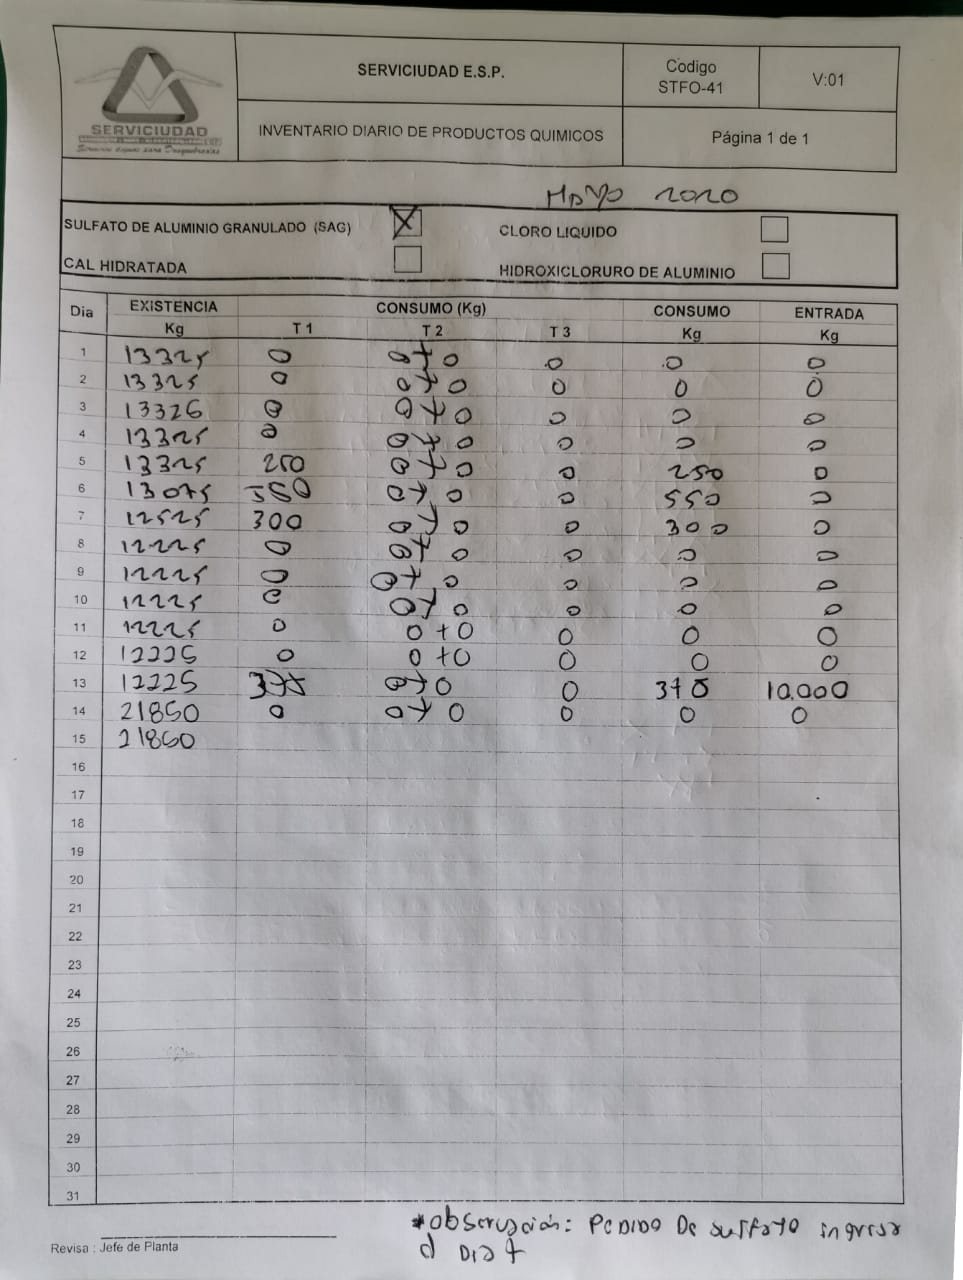 SERVICIUDAD E.S.P.
Código
STFO-41
V:01
SERVICIUDAD
INVENTARIO DIARIO DE PRODUCTOS QUIMICOS
Página 1 de 1
MAYO 2020
SULFATO DE ALUMINIO GRANULADO (SAG) X
CLORO LIQUIDO
CAL HIDRATADA
HIDROXICLORURO DE ALUMINIO
Dia EXISTENCIA CONSUMO (Kg) CONSUMO ENTRADA
Kg T 1 T 2 T 3 Kg Kg
1 13325 0 0+0 0 0 0
2 13325 0 0+0 0 0 0
3 13326 0 0+0 0 0 0
4 13325 0 0+0 0 0 0
5 13325 250 0+0 0 250 0
6 13075 550 0+0 0 550 0
7 12525 300 0+0 0 300 0
8 12225 0 0+0 0 0 0
9 12225 0 0+0 0 0 0
10 12225 0 0+0 0 0 0
11 12225 0 0+0 0 0 0
12 12225 0 0+0 0 0 0
13 12225 375 0+0 0 375 10.000
14 21850 0 0+0 0 0 0
15 21850
16
17
18
19
20
21
22
23
24
25
26
27
28
29
30
31
*observación: PEDIDO De sulfato ingresa
Revisa : Jefe de Planta
DIA